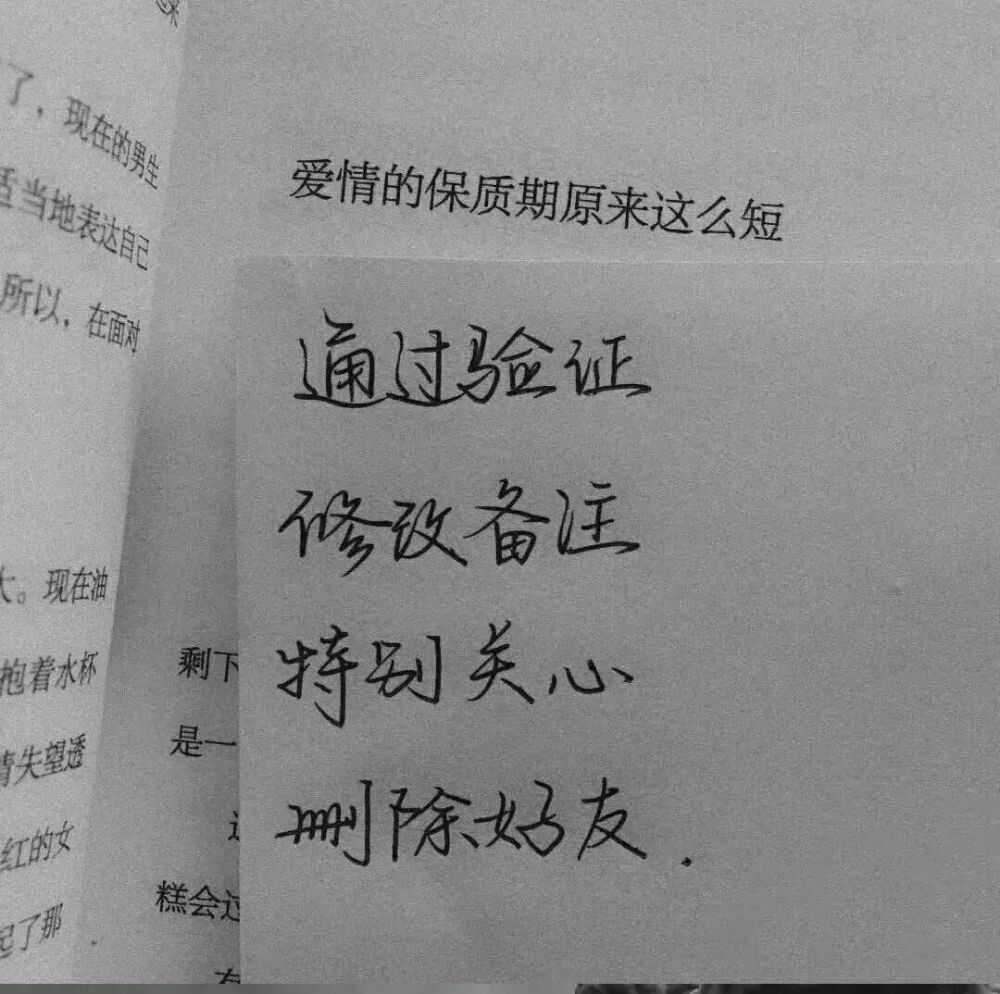 了，现在的男生
适当地表达自己
所以，在面对
大。现在油
抱着水杯
情失望透
红的女
起了那
爱情的保质期原来这么短
通过验证
修改备注
特别关心
删除好友.
剩下
是一
糕会过